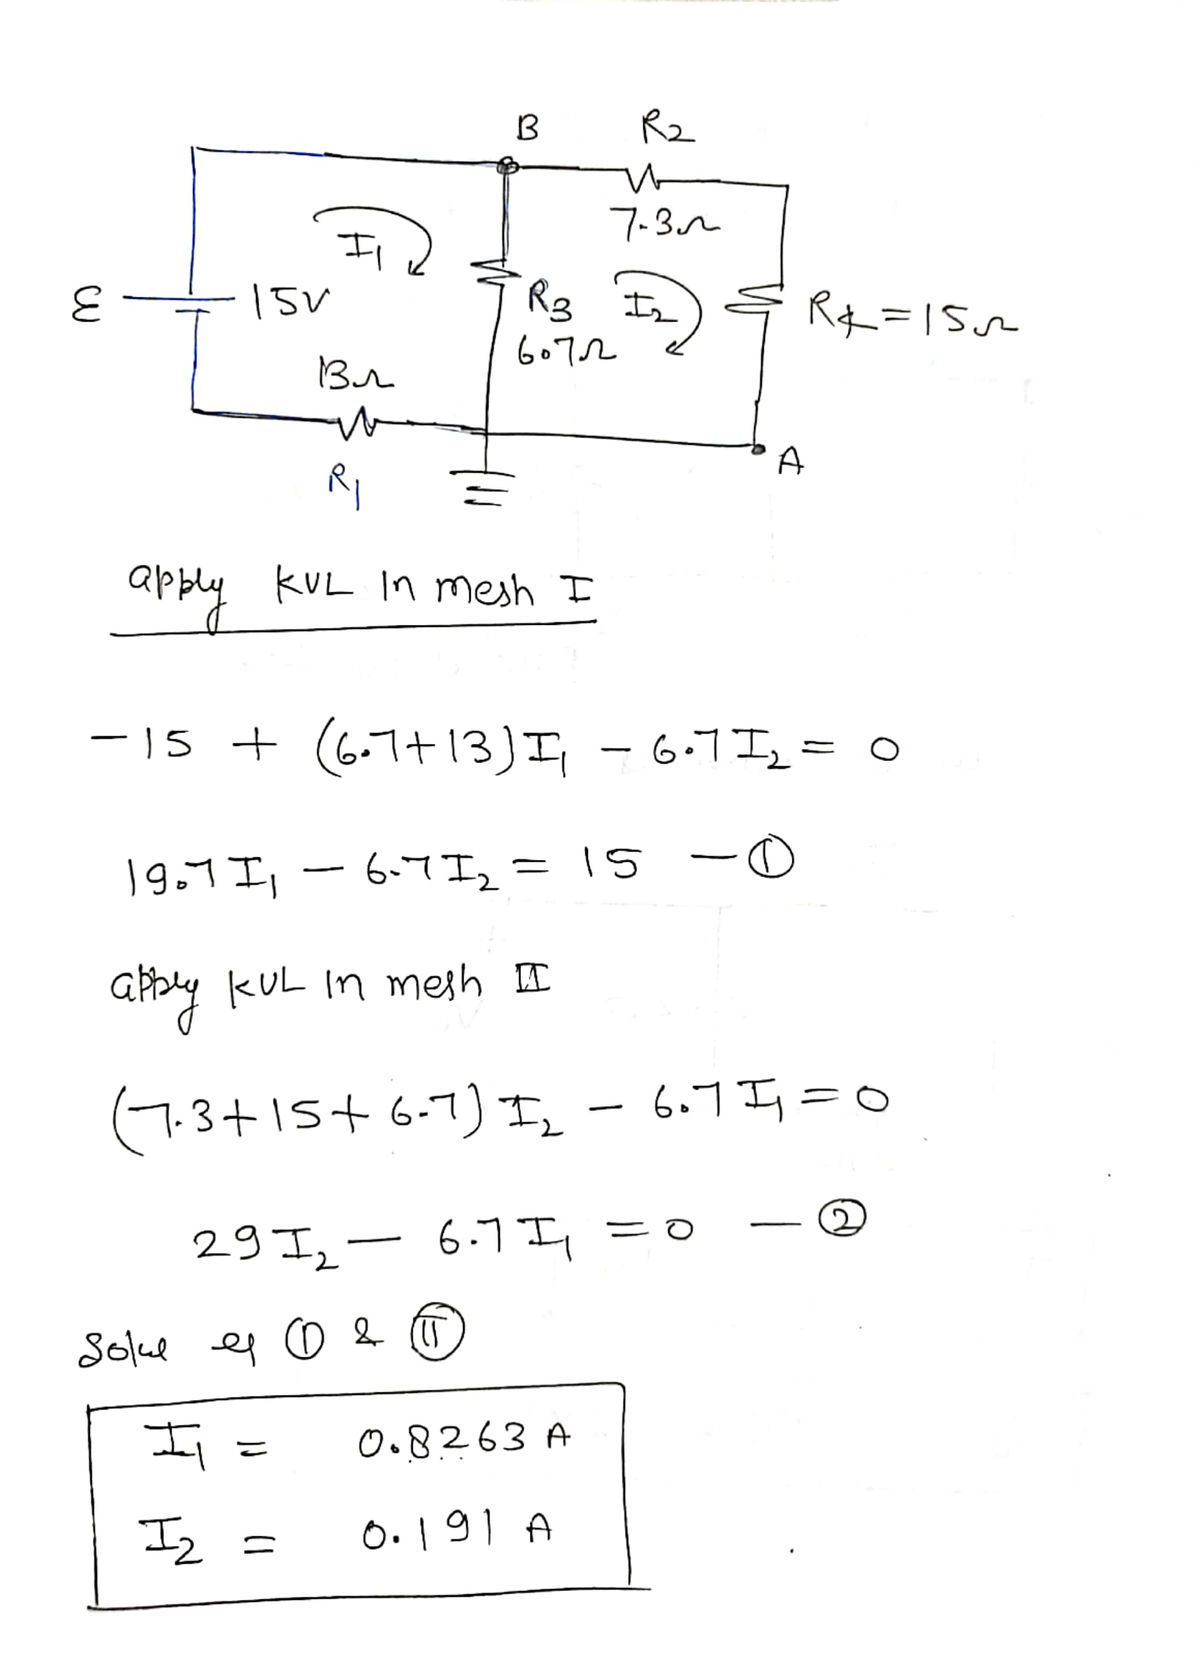 B R2
7.3Ω
I1
ε 15V R3 I2 R4 = 15Ω
6.7Ω
13Ω
A
R1
apply KVL in mesh I
-15 + (6.7+13)I1 - 6.7 I2 = 0
19.7 I1 - 6.7 I2 = 15 - ①
apply KVL in mesh II
(7.3+15+6.7) I2 - 6.7 I1 = 0
29 I2 - 6.7 I1 = 0 - ②
Solve eq ① & Ⓘ
I1 = 0.8263 A
I2 = 0.191 A